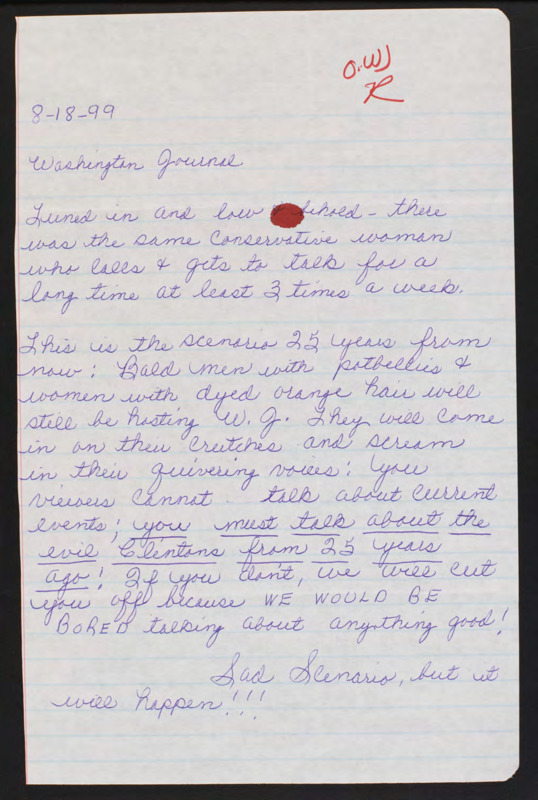 O.W)
R
8-18-99
Washington Journal
Tuned in and low behold - there
was the same Conservative woman
who calls & gets to talk for a
long time at least 3 times a week.
This is the scenario 25 years from
now: Bald men with potbellies &
women with dyed orange hair will
still be hosting W.J. They will come
in on their crutches and scream
in their quivering voices: You
viewers cannot talk about current
events; you must talk about the
evil Clintons from 25 years
ago! If you don't, we will cut
you off because WE WOULD BE
BORED talking about anything good!
Sad Scenario, but it
will happen!!!